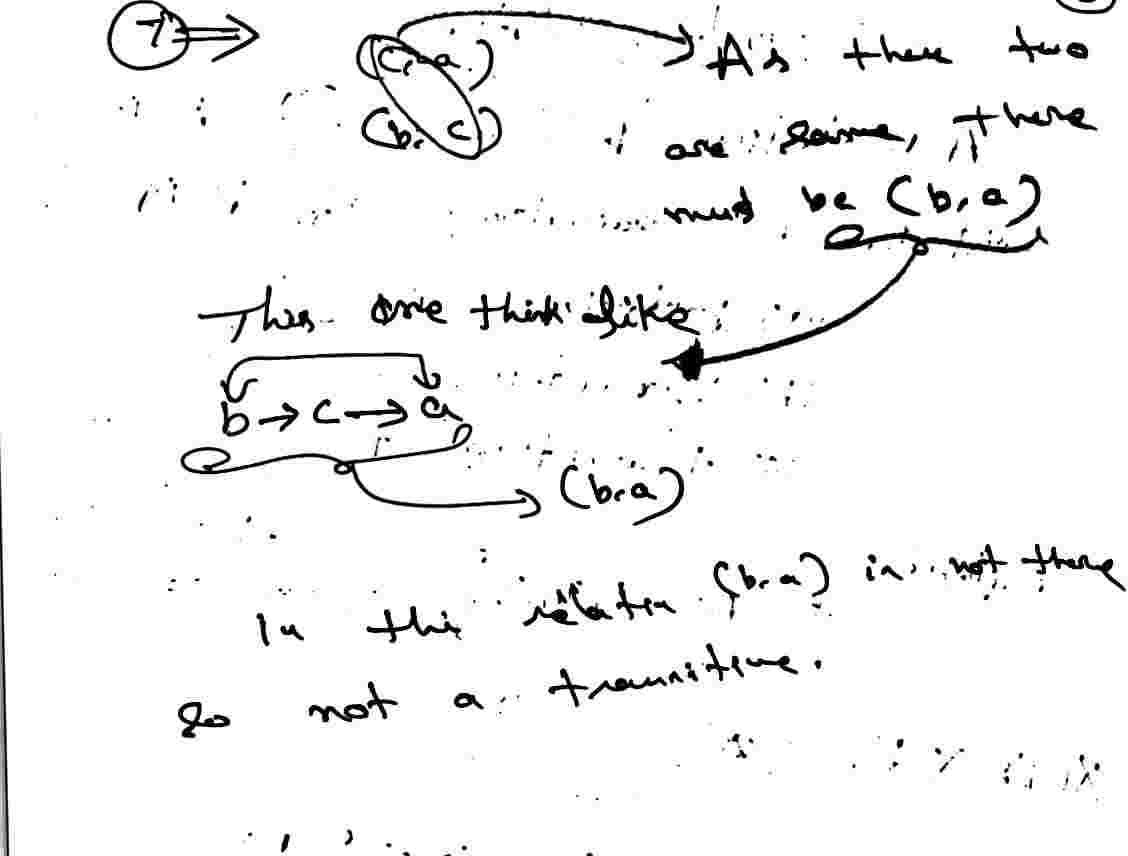 7 ⇒ (c, a) → As these two
(b, c) are same, there
must be (b, a)
This one think alike
b → c → a
→ (b, a)
In this relation (b, a) is not there
So not a transitive.